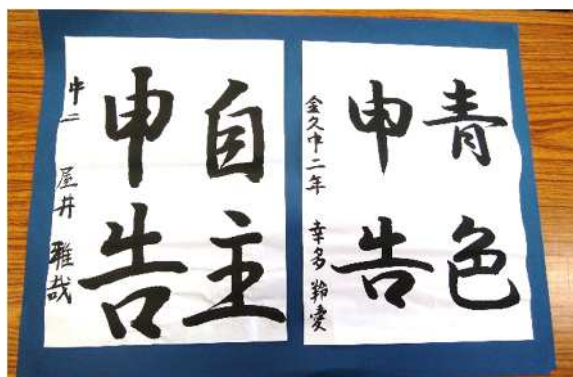 青色
申告
金久中二年 幸多 鈴愛
自主
申告
中二 屋井 雅哉